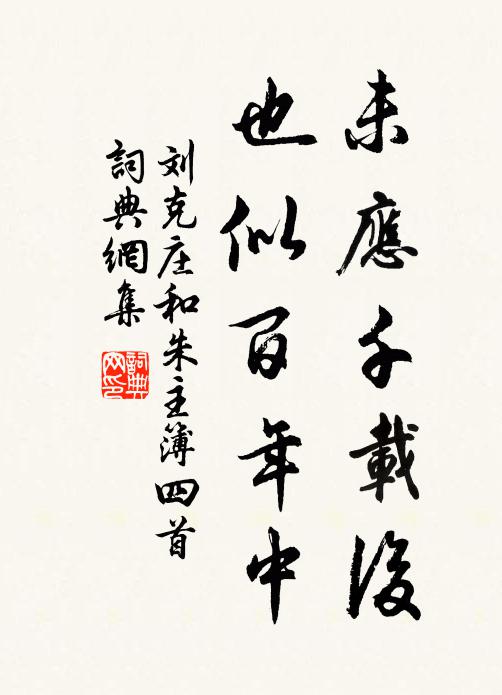 未應千載後
也似百年中
刘克庄和朱主簿四首
詞典網集
詞典
网印